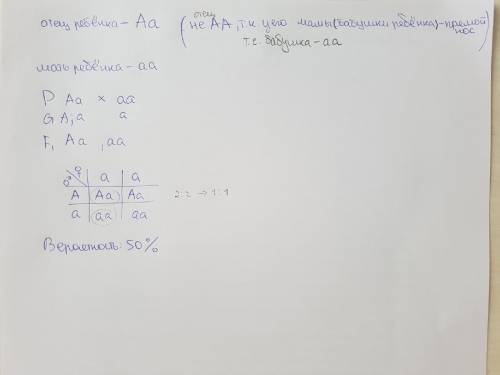 отец ребёнка - Аа (отец не АА, т.к. у его мамы (бабушки ребёнка) - прямой нос)
т.е. бабушка - аа
мать ребёнка - аа
P Аа × аа
G А; а а
F₁ Аа , аа
♀ ♂ а а
А Аа Аа 2:2 → 1:1
а аа аа
Вероятность: 50%